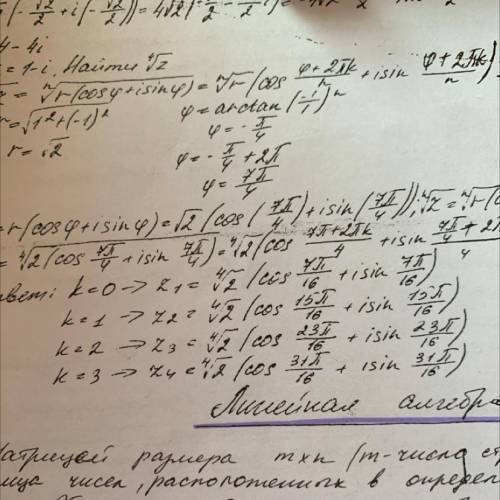 (-√2/2 + i(-√2/2)) = 4√2
4 - 4i
= 1 - i. Найти ⁴√z
= ⁿ√r(cosφ + isinφ) = ⁿ√r (cos (φ + 2πk)/n + isin (φ + 2πk)/n)
r = √1² + (-1)²
φ = arctan
r = √2
φ = -π/4
φ = -π/4 + 2π
φ = 7π/4
= r(cosφ + isinφ) = √2 (cos (7π/4) + isin (7π/4)); ⁴√z = ⁿ√r(
= ⁴√2 (cos 7π/4 + isin 7π/4) = ⁴√2 (cos 7π + 2πk/4 + isin 7π/4 + 2π
вет: k = 0 → z₁ = ⁴√2 (cos 7π/16 + isin 7π/16)
k = 1 → z₂ = ⁴√2 (cos 15π/16 + isin 15π/16)
k = 2 → z₃ = ⁴√2 (cos 23π/16 + isin 23π/16)
k = 3 → z₄ = ⁴√2 (cos 31π/16 + isin 31π/16)
Линейная алгебра
Матрицей размера m×n (m-число стр
ица чисел, расположенных в определ